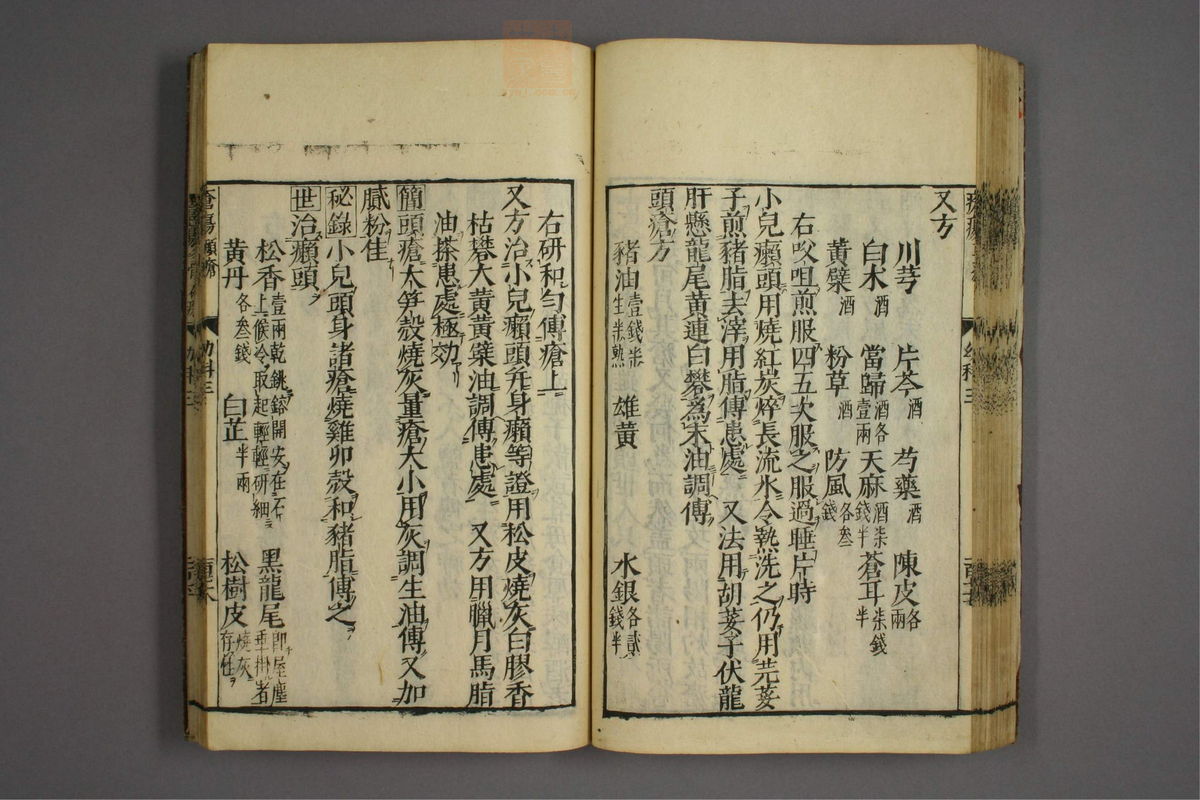 又方
川芎 片芩酒 芍藥酒 陳皮各兩
白朮酒 當歸酒各壹兩 天麻酒柒錢半 蒼耳柒錢半
黃蘗酒 粉草酒 防風各叁錢
右㕮咀煎服四五次服之服過睡片時
小兒癩頭用燒紅炭焠長流水令熱洗之仍用芫荽
子煎豬脂去滓用脂傅患處 又法用胡荽子伏龍
肝懸龍尾黃連白礬為末油調傅
頭瘡方
豬油壹錢半生半熟 雄黃 水銀各貳錢半
右研和勻傅瘡上
又方治小兒癩頭并身癩等證用松皮燒灰白膠香
枯礬大黃黃蘗油調傅患處 又方用臘月馬脂
油搽患處極効
簡頭瘡大笋殼燒灰量瘡大小用灰調生油傅又加
膩粉佳
秘錄小兒頭身諸瘡燒雞卵殼和豬脂傅之
世治癩頭
松香壹兩乾銚鎔開安在石上候冷取起輕輕研細 黑龍尾即屋塵垂掛者
黃丹各叁錢 白芷半兩 松樹皮燒灰存性
瘡瘍頭瘡 幼科三